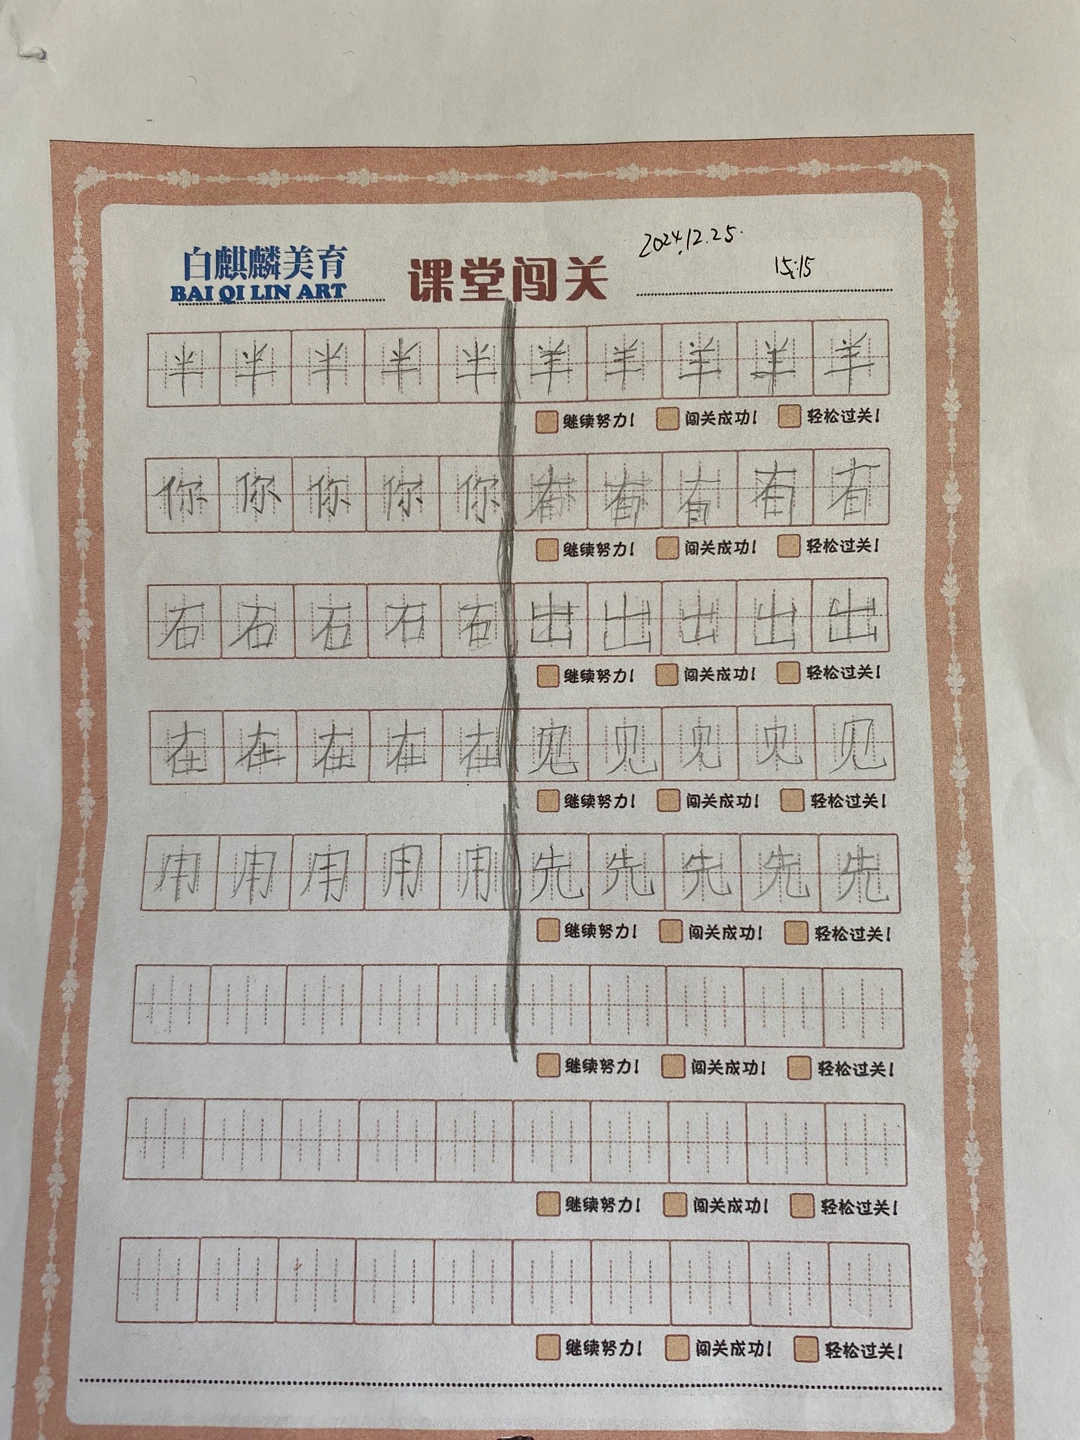 白麒麟美育
BAI QI LIN ART
课堂闯关
2024.12.25.
15:15
半 半 半 半 半 羊 羊 羊 羊 羊
继续努力! 闯关成功! 轻松过关!
你 你 你 你 你 有 有 有 有 有
继续努力! 闯关成功! 轻松过关!
石 石 石 石 石 出 出 出 出 出
继续努力! 闯关成功! 轻松过关!
在 在 在 在 在 见 见 见 见 见
继续努力! 闯关成功! 轻松过关!
用 用 用 用 用 先 先 先 先 先
继续努力! 闯关成功! 轻松过关!
继续努力! 闯关成功! 轻松过关!
继续努力! 闯关成功! 轻松过关!
继续努力! 闯关成功! 轻松过关!